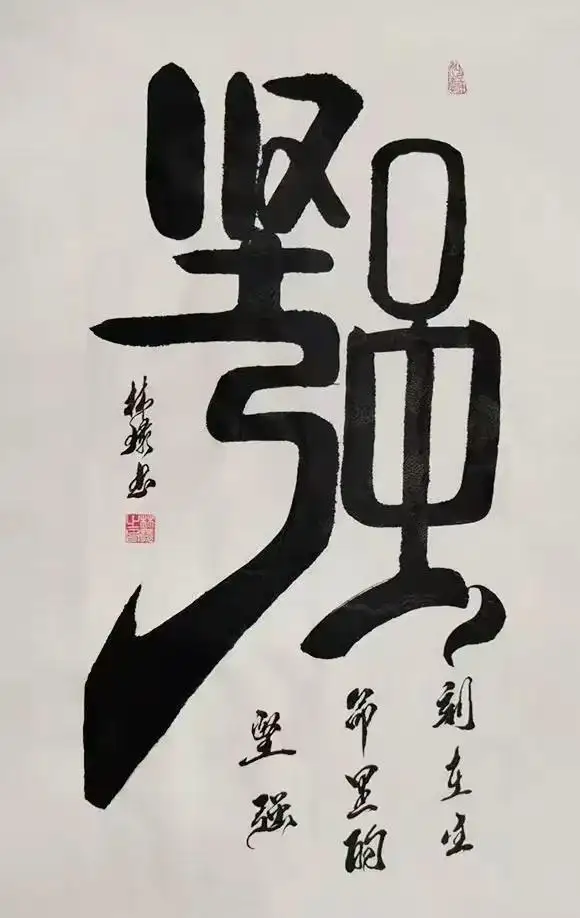 坚强
刻在生
命里的
堅强
林
书